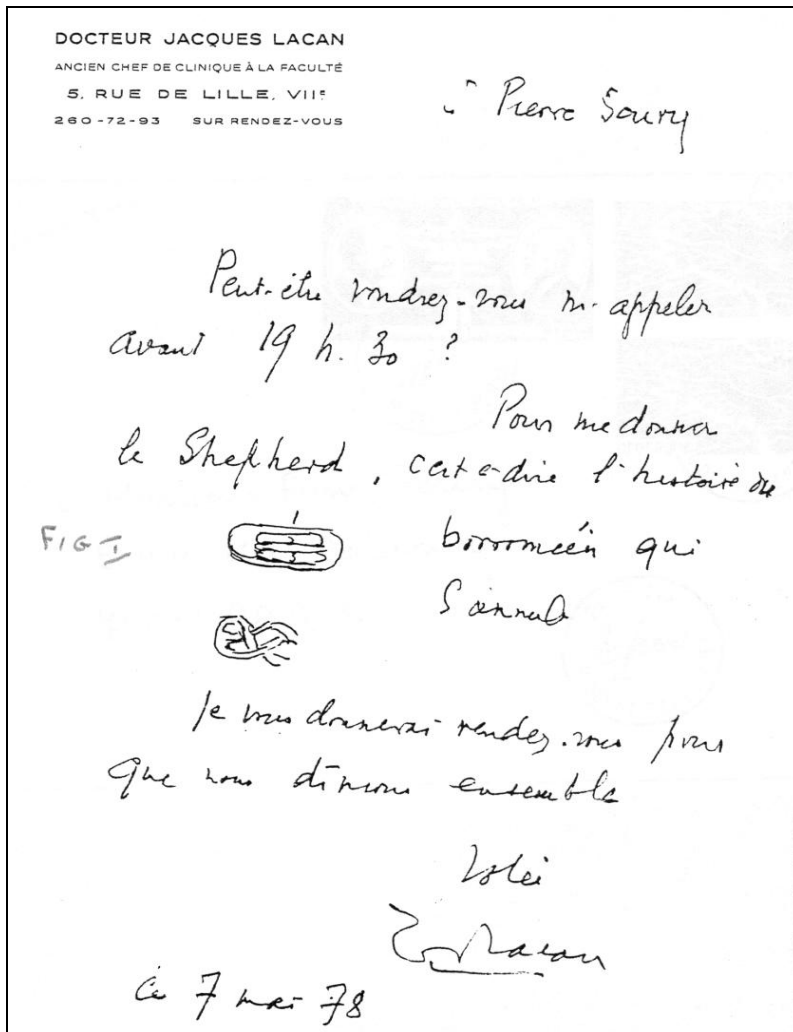 DOCTEUR JACQUES LACAN
ANCIEN CHEF DE CLINIQUE À LA FACULTÉ
5, RUE DE LILLE, VIIᵉ
260-72-93 SUR RENDEZ-VOUS
à Pierre Soury
Peut-être voudrez-vous m'appeler
avant 19 h. 30 ?
Pour me donner
le Shepherd, c'est-à-dire l'histoire du
FIG I
borroméen qui
s'annule
Je vous donnerai rendez-vous pour
que nous dînions ensemble
Lacan
Ce 7 mai 78